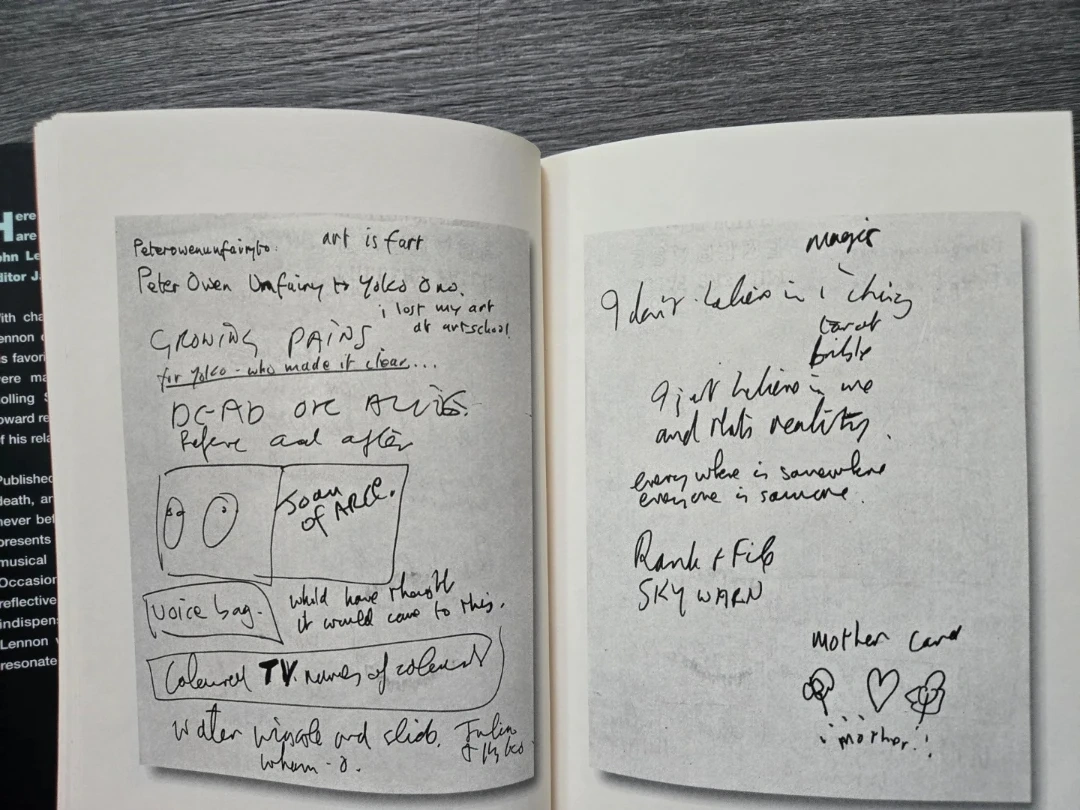 Here
are
ohn Le
ditor J.
ith cha
ennon
s favori
ere ma
olling S
oward re
f his rela
Published
death, an
never bef
presents
musical
Occasion
reflective
indispen
Lennon
resonate
Peterowenunfairyto:
art is fart
Peter Owen Unfairy to Yoko Ono.
i lost my art
at artschool
GROWING PAINS.
for Yoko - who made it clear...
DEAD OR ALIVE.
Before and after
Joan
of ARC.
Voice bag.
would have thought
it would come to this.
Coloured TV. names of
Water wiggle and slide.
wham-o.
magic
I don't believe in i ching
tarot
bible
I just believe in me
and that's reality.
everywhere is somewhere
everyone is someone.
Rank + File
SKY WARN
mother card
mother